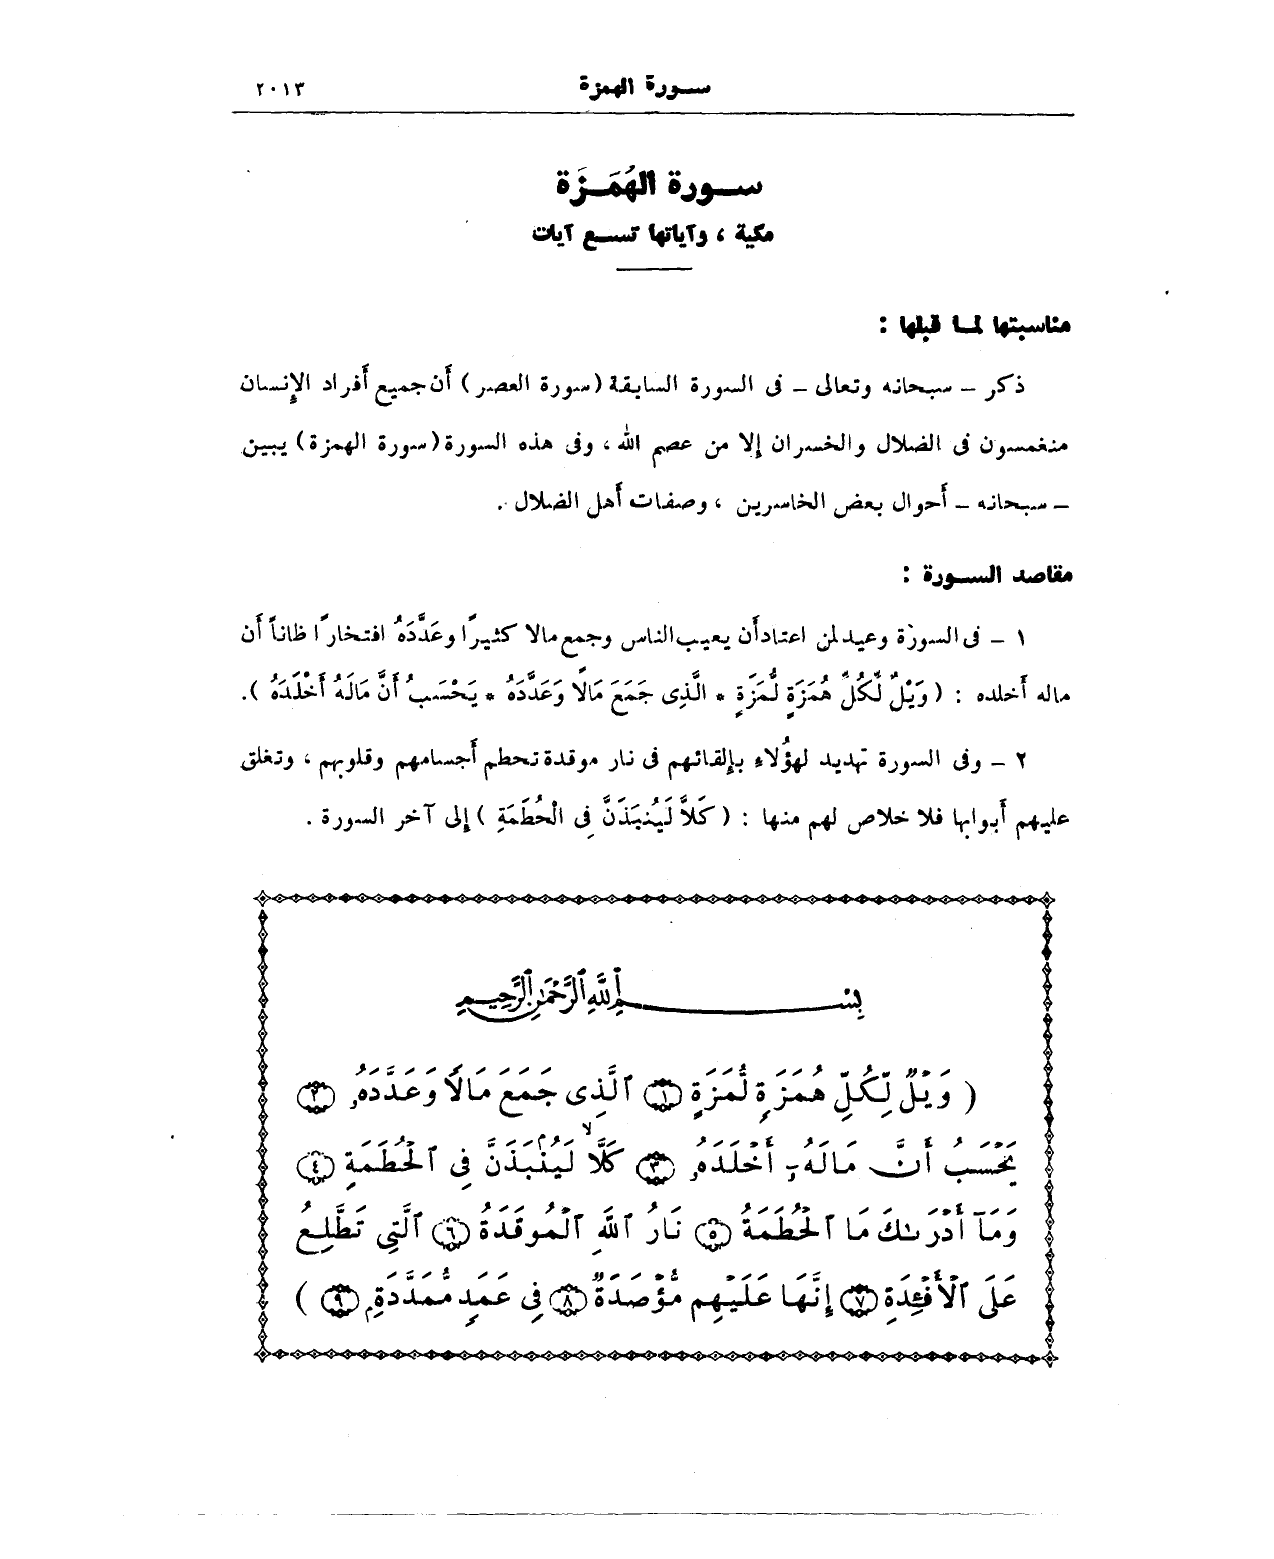 سورة الهمزة ٢٠١٣
سورة الهُمَزَة
مكية ، وآياتها تسع آيات
مناسبتها لما قبلها :
ذكر – سبحانه وتعالى – فى السورة السابقة (سورة العصر) أَن جميع أَفراد الإِنسان
منغمسون فى الضلال والخسران إِلا من عصم الله ، وفى هذه السورة (سورة الهمزة) يبين
– سبحانه – أَحوال بعض الخاسرين ، وصفات أَهل الضلال .
مقاصد السورة :
١ – فى السورة وعيد لمن اعتاد أَن يعيب الناس وجمع مالا كثيرًا وعَدَّدَهُ افتخارًا ظانًا أَن
ماله أَخلده : ( وَيْلٌ لِّكُلِّ هُمَزَةٍ لُّمَزَةٍ * الَّذِى جَمَعَ مَالًا وَعَدَّدَهُ * يَحْسَبُ أَنَّ مَالَهُ أَخْلَدَهُ ).
٢ – وفى السورة تهديد لهؤُلاءِ بإِلقائهم فى نار موقدة تحطم أَجسامهم وقلوبهم ، وتغلق
عليهم أَبوابها فلا خلاص لهم منها : ( كَلَّا لَيُنبَذَنَّ فِى الْحُطَمَةِ ) إِلى آخر السورة .
بِسْمِ ٱللَّهِ ٱلرَّحْمَٰنِ ٱلرَّحِيمِ
( وَيْلٌ لِّكُلِّ هُمَزَةٍ لُّمَزَةٍ ١ ٱلَّذِى جَمَعَ مَالًا وَعَدَّدَهُۥ ٢
يَحْسَبُ أَنَّ مَالَهُۥٓ أَخْلَدَهُۥ ٣ كَلَّا ۖ لَيُنۢبَذَنَّ فِى ٱلْحُطَمَةِ ٤
وَمَآ أَدْرَىٰكَ مَا ٱلْحُطَمَةُ ٥ نَارُ ٱللَّهِ ٱلْمُوقَدَةُ ٦ ٱلَّتِى تَطَّلِعُ
عَلَى ٱلْأَفْـِٔدَةِ ٧ إِنَّهَا عَلَيْهِم مُّؤْصَدَةٌ ٨ فِى عَمَدٍ مُّمَدَّدَةٍۭ ٩ )